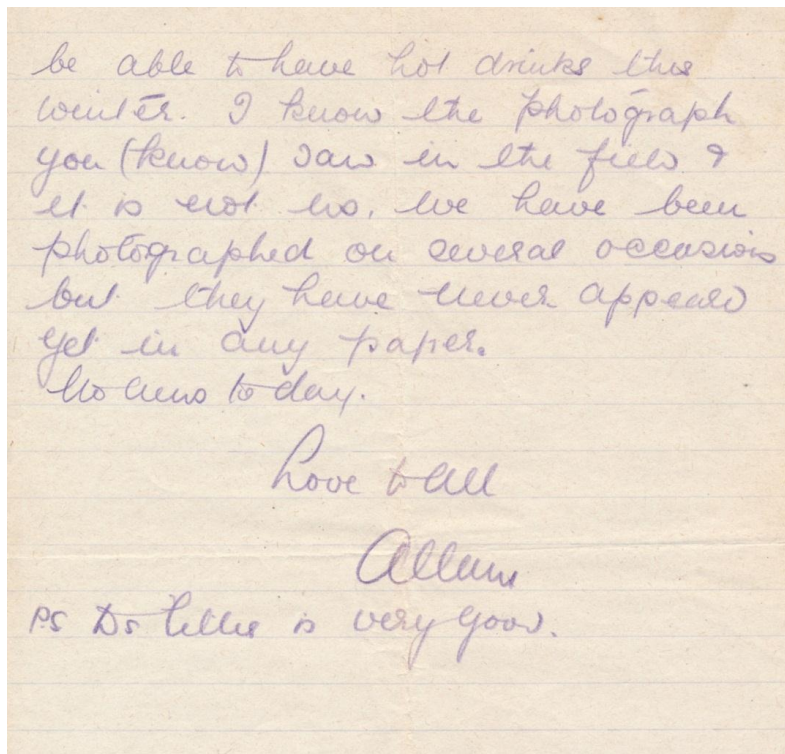 be able to have hot drinks this
winter. I know the photograph
you (know) saw in the field &
it is not us. We have been
photographed on several occasions
but they have never appeared
yet in any paper.
No news to day.
Love to all
Allan
PS Dr is very good.